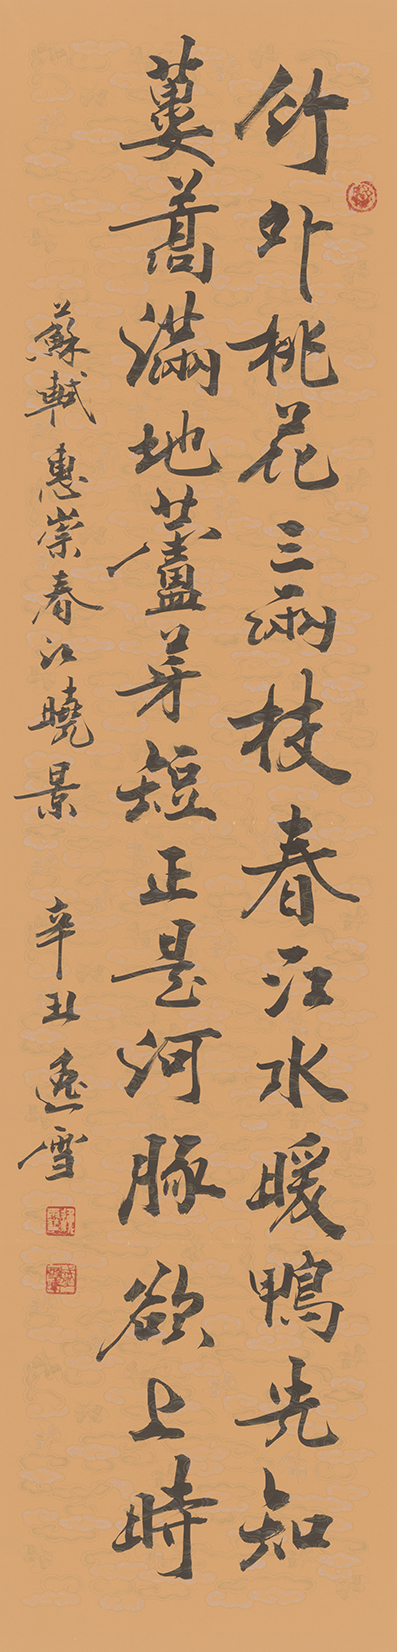 竹外桃花三兩枝春江水暖鴨先知
蔞蒿滿地蘆芽短正是河豚欲上時
蘇軾惠崇春江曉景 辛丑 逸雪